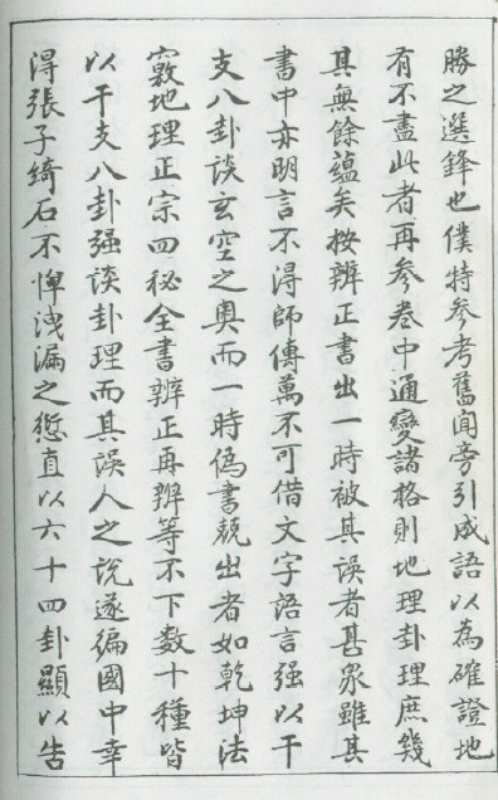 勝之選鋒也僕特參考舊聞旁引成語以為確證地
有不盡此者再參卷中通變諸格則地理卦理庶幾
其無餘蘊矣按辨正書出一時被其误者甚众雖其
書中亦明言不淂師傳萬不可借文字語言强以干
支八卦谈玄空之奥而一時偽書競出者如乾坤法
竅地理正宗四秘全書辨正再辨等不下数十種皆
以干支八卦强谈卦理而其误人之說遂徧國中幸
淂張子綺石不惮洩漏之愆直以六十四卦顯以告